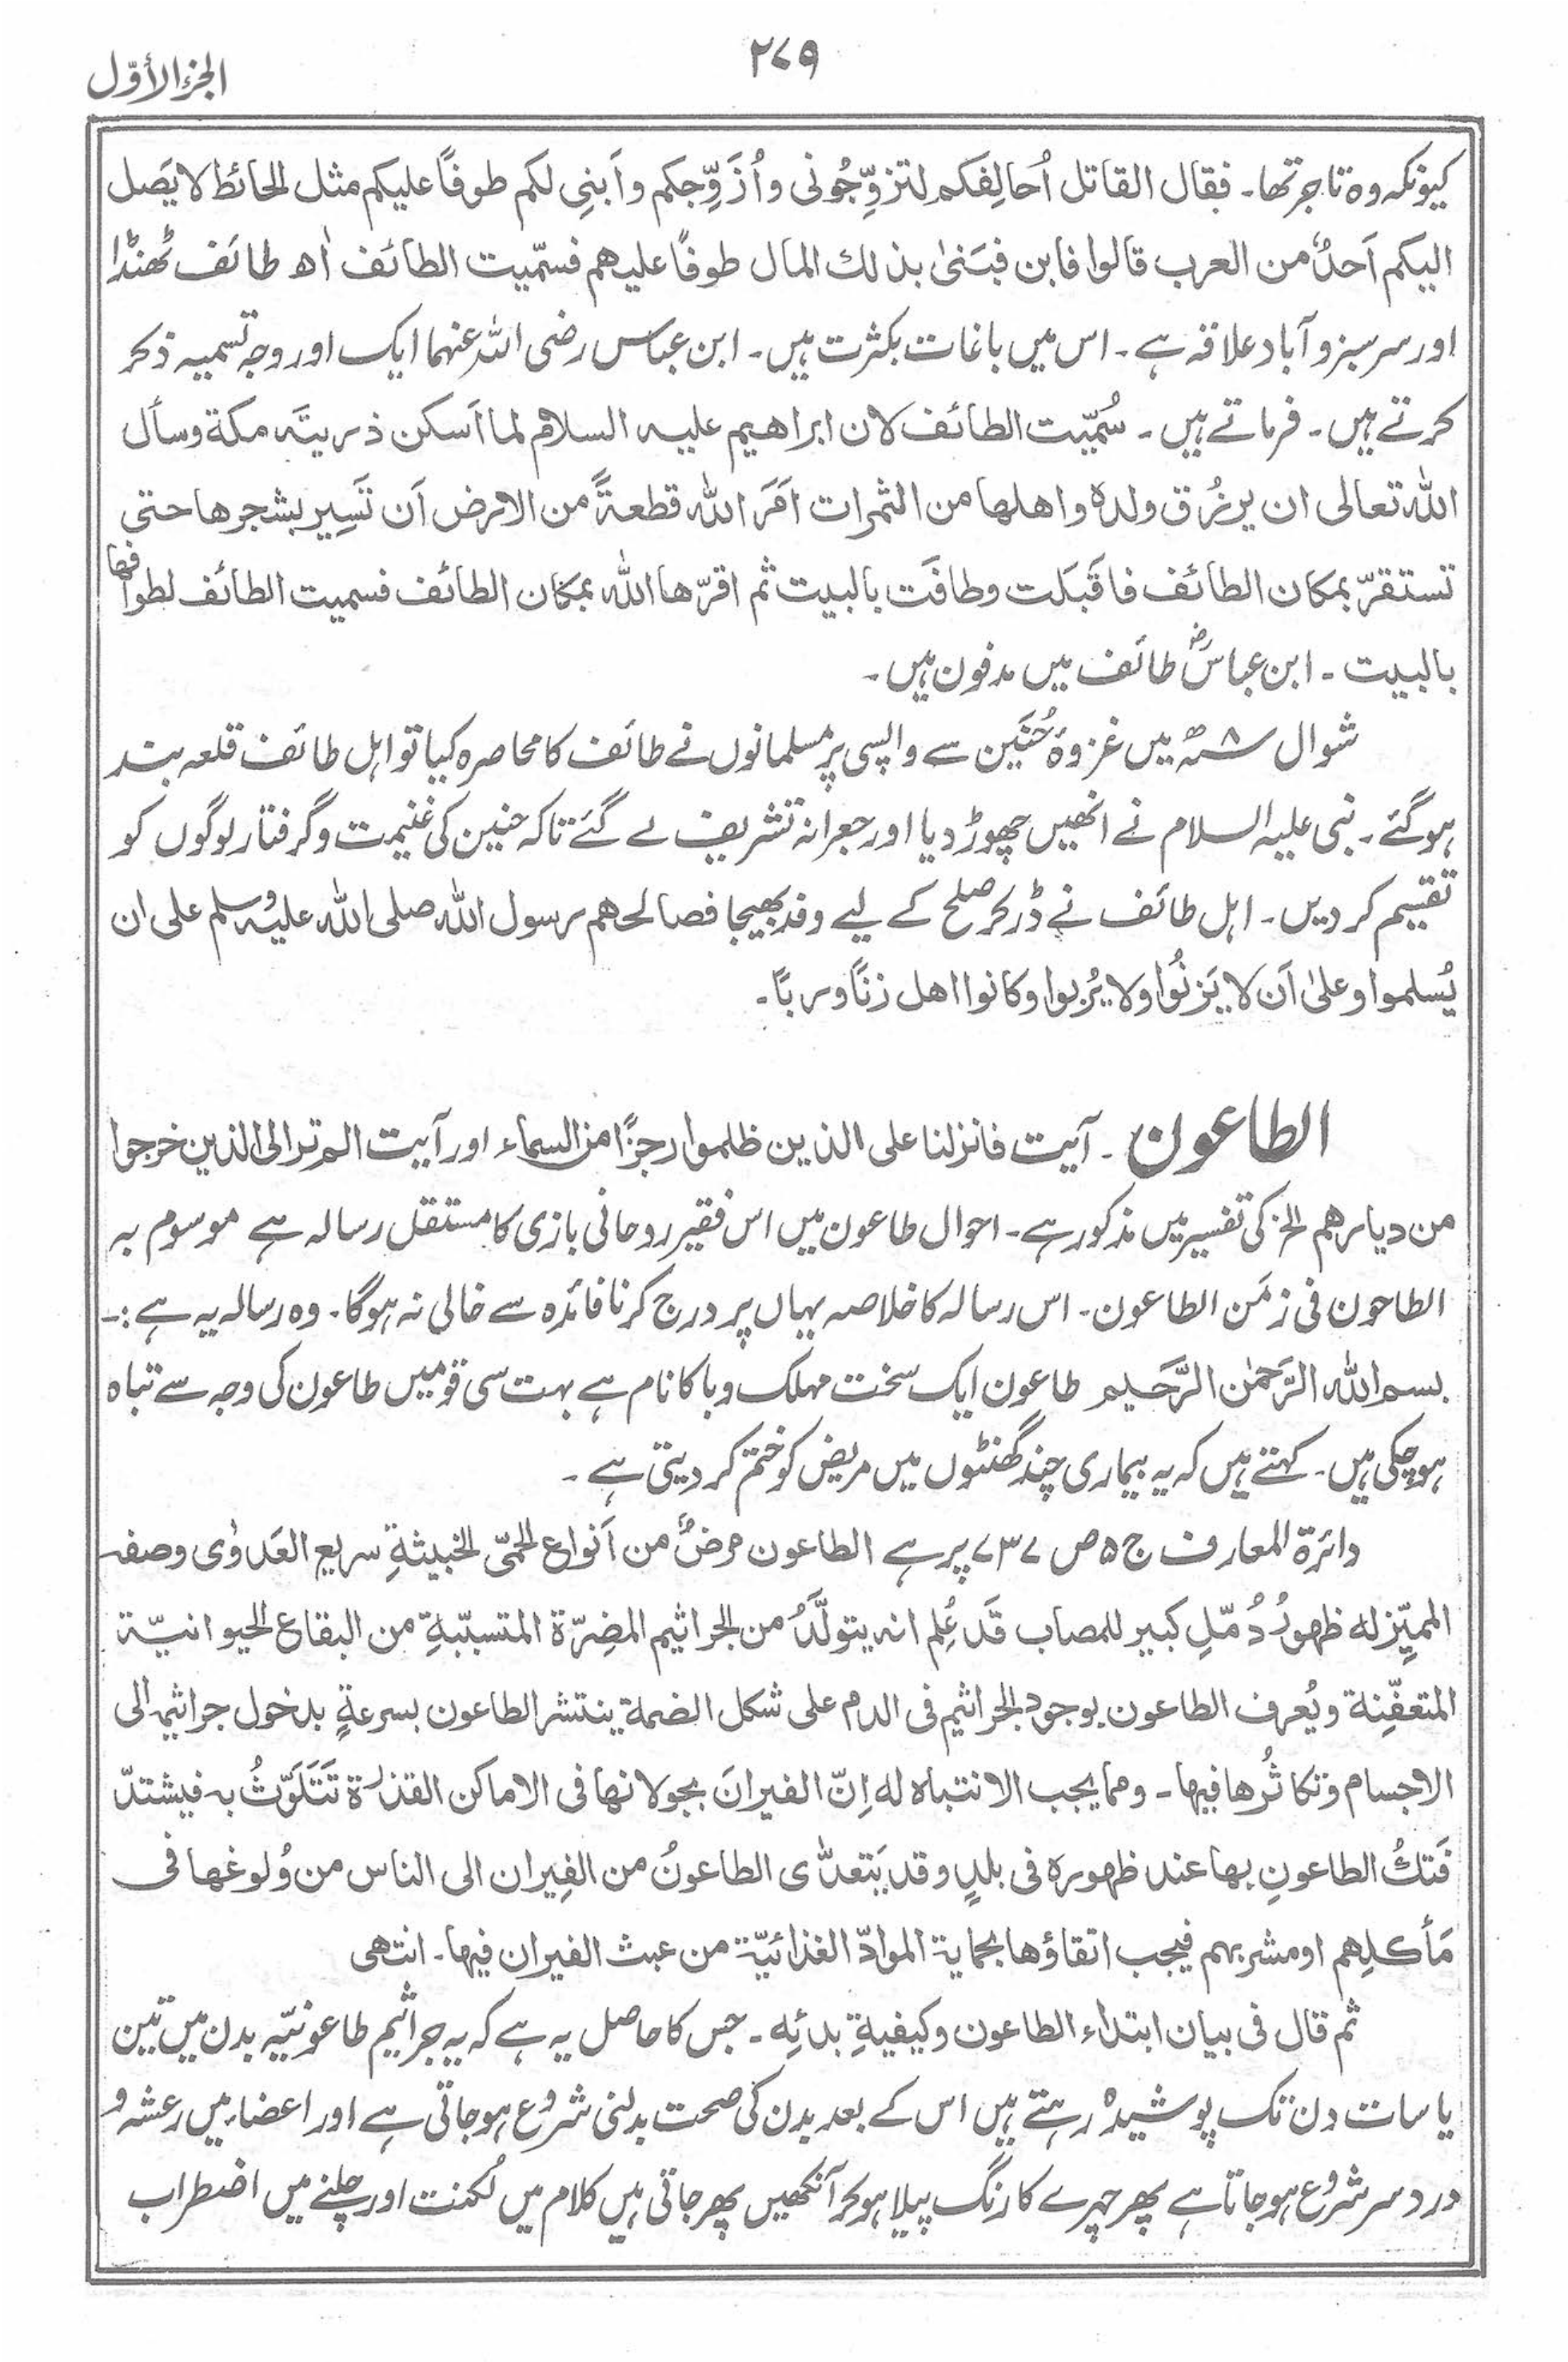 ۲۷۹
الجزء الأوّل
کیونکہ وہ تاجر تھا۔ فقال القاتل اُحالِفکم لتزوِّجُونی و اُزَوِّجکم واَبنِی لکم طوفًا علیکم مثل الحائط لا یَصل
الیکم اَحدٌ من العرب قالوا فابن فبَنیٰ بذلك المال طوفًا علیهم فسمّیت الطائف اٰھ طائف ٹھنڈا
اور سرسبز و آباد علاقہ ہے۔ اس میں باغات بکثرت ہیں۔ ابن عباس رضی اللہ عنہما ایک اور وجہ تسمیہ ذکر
کرتے ہیں۔ فرماتے ہیں۔ سُمّیت الطائف لان ابراهیم علیہ السلام لما اَسکن ذریتَہ مکة وسأل
اللہ تعالی ان یرزُق ولدہ و اهلها من الثمرات اَمَرَ اللہ قطعةً من الارض اَن تَسِیر بشجرها حتی
تستقرّ بمکان الطائف فاقَبَلت وطافَت بالبیت ثم اقرّها اللہ بمکان الطائف فسمیت الطائف لطوافها
بالبیت۔ ابن عباسؓ طائف میں مدفون ہیں۔
شوال ۸ھ میں غزوۂ حُنَین سے واپسی پر مسلمانوں نے طائف کا محاصرہ کیا تو اہل طائف قلعہ بند
ہوگئے۔ نبی علیہ السلام نے انھیں چھوڑ دیا اور جعرانہ تشریف لے گئے تاکہ حنین کی غنیمت و گرفتار لوگوں کو
تقسیم کر دیں۔ اہل طائف نے ڈر کر صلح کے لیے وفد بھیجا فصالحهم رسول اللہ صلی اللہ علیہ وسلم علی ان
یُسلموا وعلیٰ اَن لا یَزنُوا ولا یُربوا وکانوا اهل زنًا وربًا۔
الطاعون۔ آیت فانزلنا علی الذین ظلموا رجزًا من السماء اور آیت الم تر الی الذین خرجوا
من دیارهم الخ کی تفسیر میں مذکور ہے۔ احوال طاعون میں اس فقیر روحانی بازی کا مستقل رسالہ ہے موسوم بہ
الطاحون فی زمَن الطاعون۔ اس رسالہ کا خلاصہ یہاں پر درج کرنا فائدہ سے خالی نہ ہوگا۔ وہ رسالہ یہ ہے :۔
بسم اللہ الرَّحمٰن الرَّحیم طاعون ایک سخت مہلک وبا کا نام ہے بہت سی قومیں طاعون کی وجہ سے تباہ
ہوچکی ہیں۔ کہتے ہیں کہ یہ بیماری چند گھنٹوں میں مریض کو ختم کر دیتی ہے۔
دائرۃ المعارف ج ۵ ص ۷۳۷ پر ہے الطاعون مرضٌ من اَنواع الحمّی الخبیثةِ سریع العَدوٰی وصفہ
الممیِّز له ظهورُ دُمّلٍ کبیر للمصاب قَد عُلِم انہ یتولَّدُ من الجراثیم المضِرّة المتسبّبةِ من البقاع الحیوانیّة
المتعفِّنة ویُعرف الطاعون بوجود الجراثیم فی الدم علی شکل الضمة ینتشر الطاعون بسرعةٍ بدخول جراثیمہ الی
الاجسام وتکاثُرها فیها۔ ومما یجب الانتباہ له اِنّ الفیرانَ بجولانها فی الاماکن القذرة تَتَلَوّثُ بہ فیشتدّ
فَتكُ الطاعونِ بها عند ظهورہ فی بلدٍ وقد یَتعدّٰی الطاعونُ من الفِیران الی الناس من وُلوغها فی
مَأکلِهم او مشربهم فیجب اتقاؤها بحمایة الموادّ الغذائیّة من عبث الفیران فیها۔ انتهی
ثم قال فی بیان ابتداء الطاعون وکیفیةِ بدئِه۔ جس کا حاصل یہ ہے کہ یہ جراثیم طاعونیّہ بدن میں تین
یا سات دن تک پوشیدہ رہتے ہیں اس کے بعد بدن کی صحت بدلنی شروع ہوجاتی ہے اور اعضاء میں رعشہ و
درد سر شروع ہو جاتا ہے پھر چہرے کا رنگ پیلا ہوکر آنکھیں پھر جاتی ہیں کلام میں لُکنت اور چلنے میں اضطراب